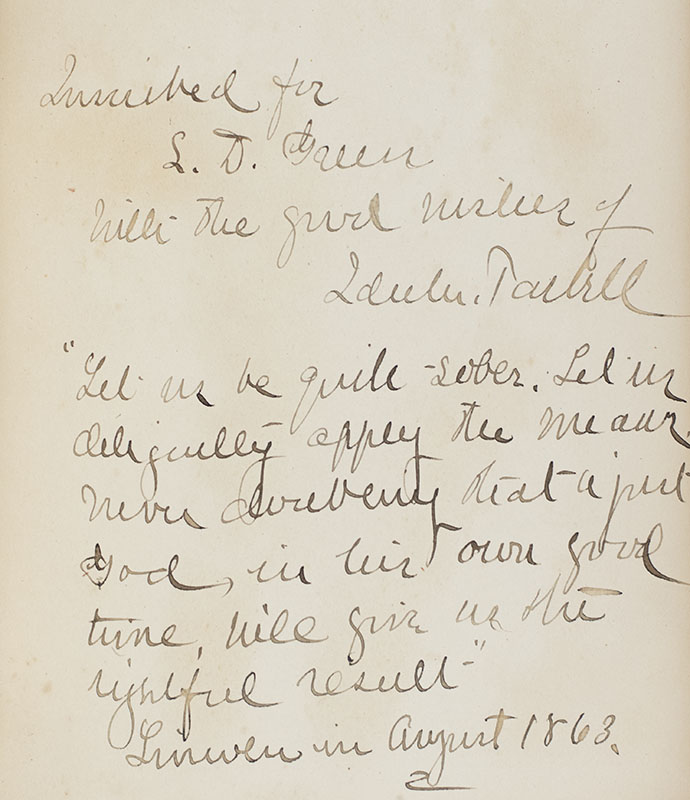 Inscribed for
L. D. Green
With the good wishes of
Ida M. Tarbell
"Let us be quite sober. Let us
diligently apply the means,
never doubting that a just
God, in his own good
time, will give us the
rightful result"
Lincoln in August 1863.